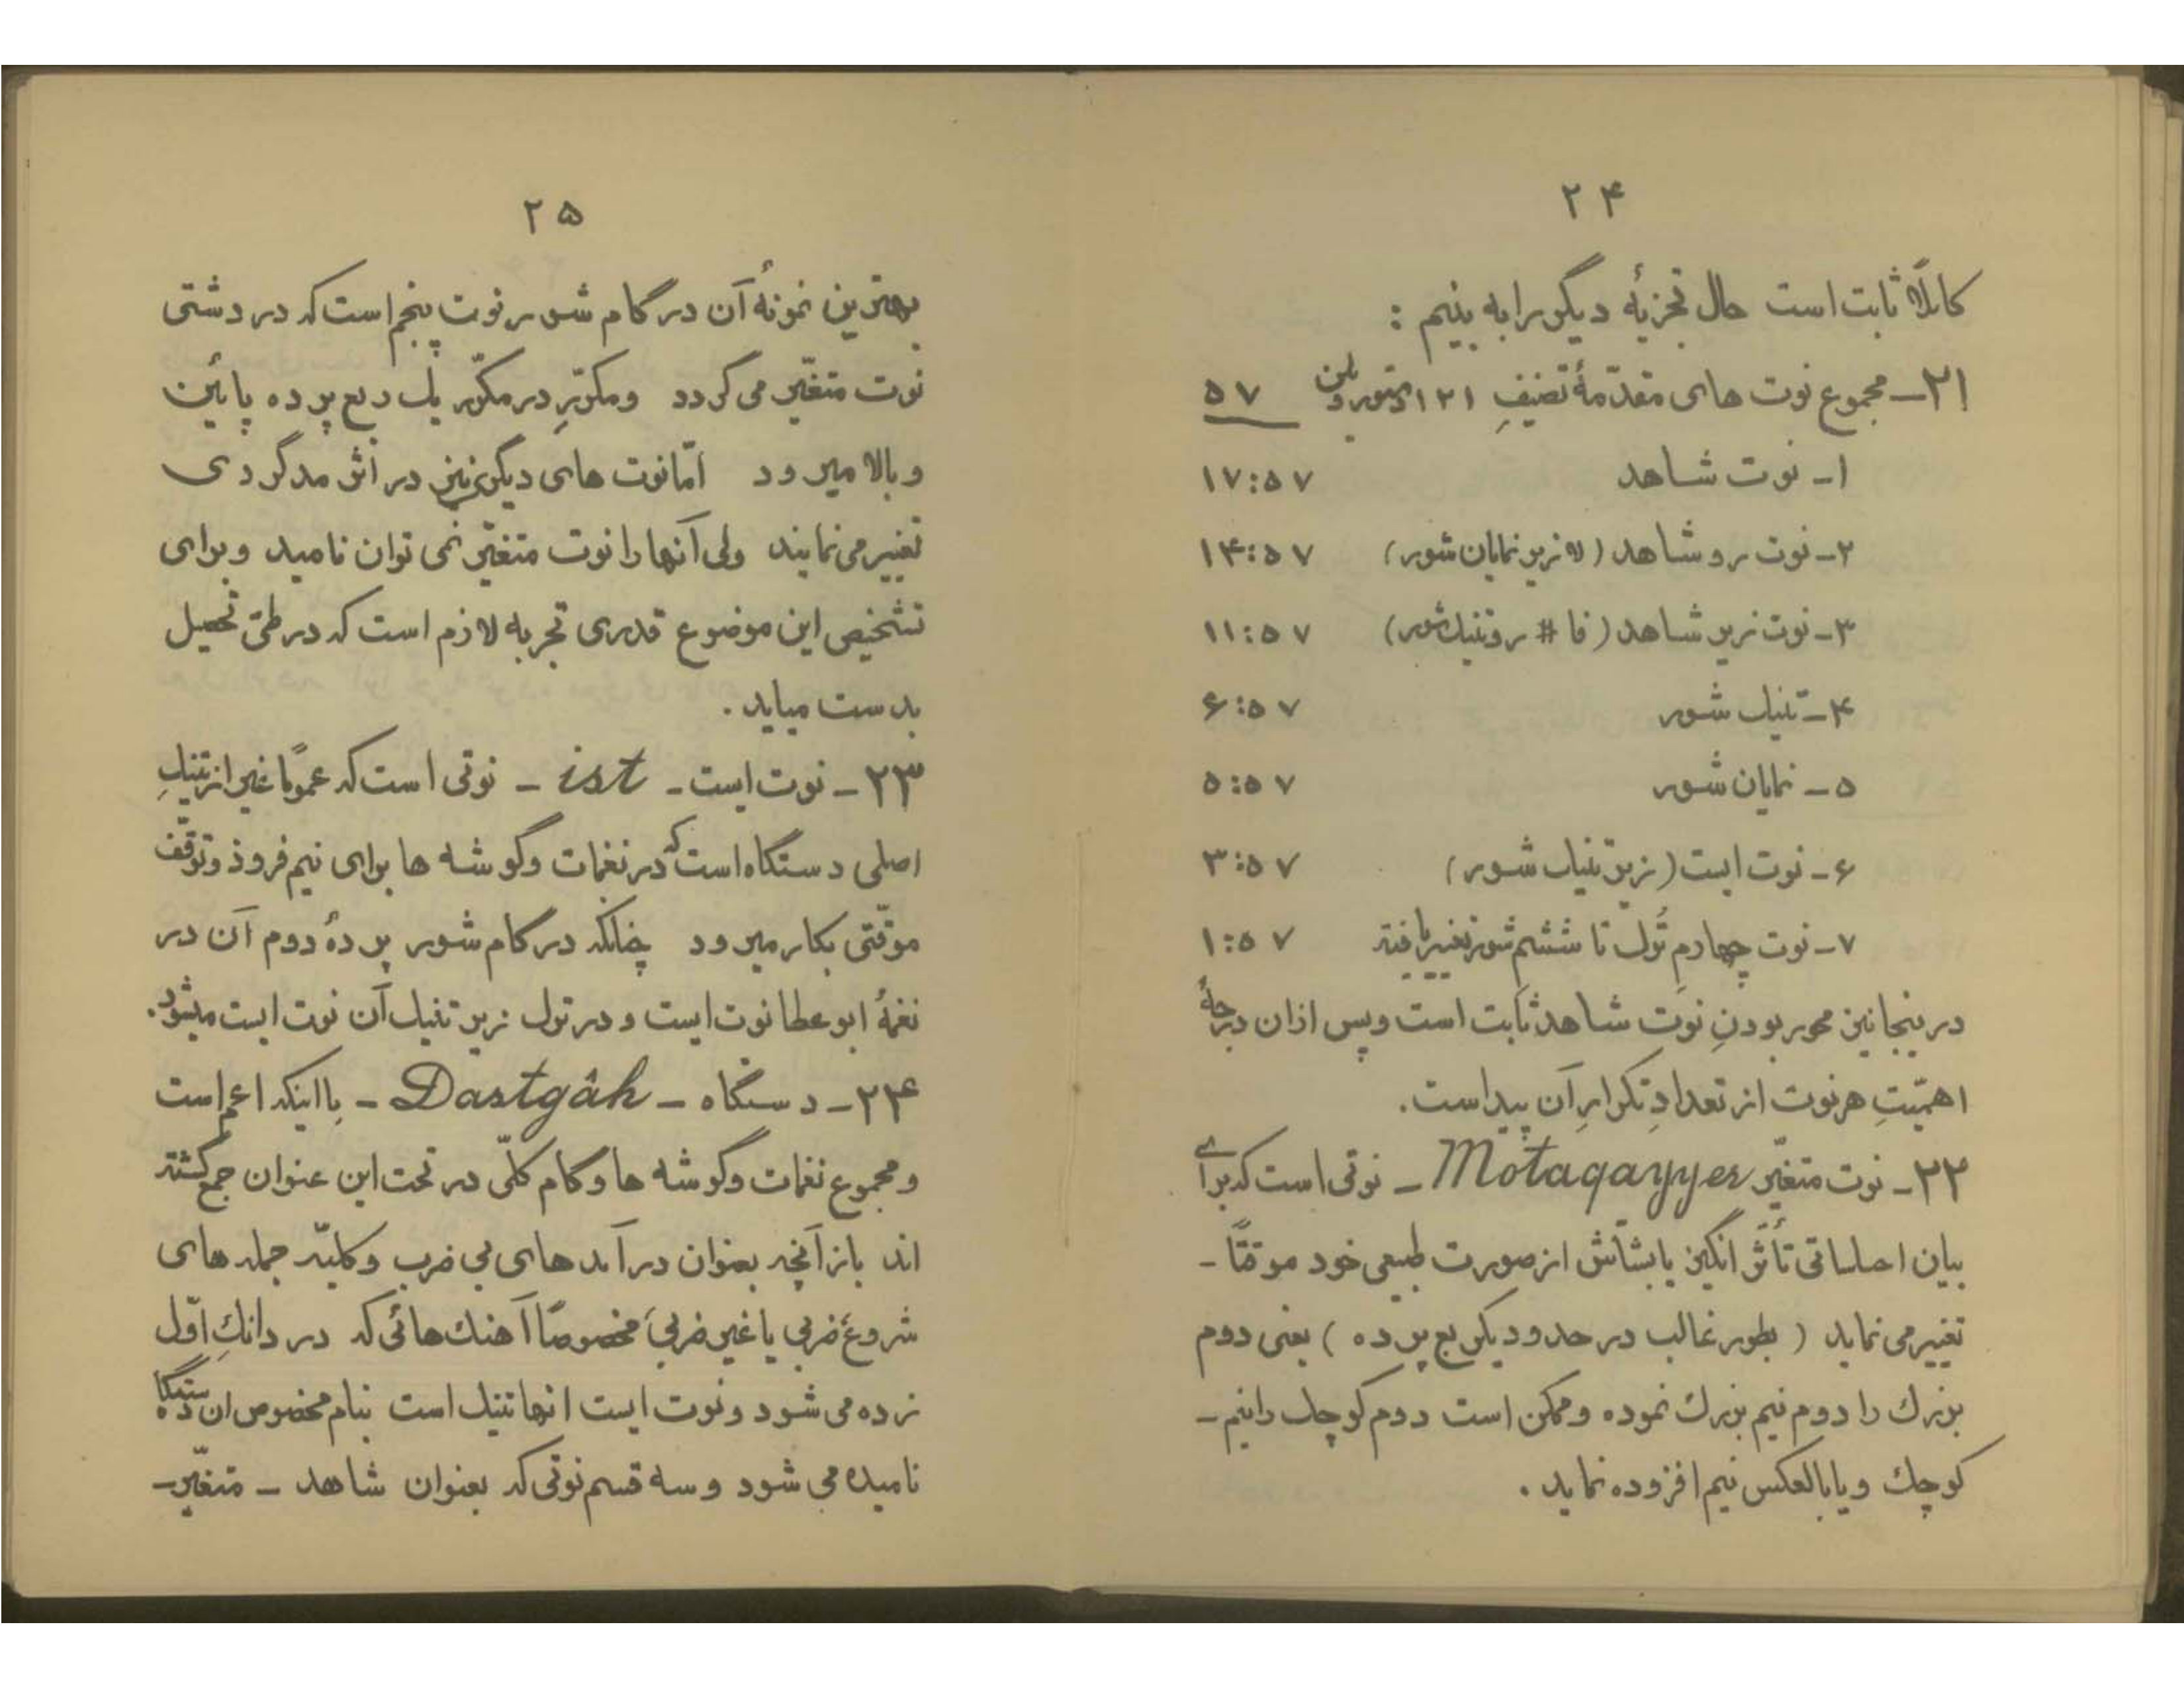 ۲۴
کاملاً ثابت است حال تجزیهٔ دیگر را به بینیم :
۲۱ـ مجموع نوت های مقدّمهٔ تصنیفِ ۱۲۱ دستور ویلن ۵۷
۱ـ نوت شاهد ۱۷:۵۷
۲ـ نوت رو شاهد (لا زیر نمایان شور) ۱۴:۵۷
۳ـ نوت زیر شاهد (فا # رو تنیک شور) ۱۱:۵۷
۴ـ تنیک شور ۶:۵۷
۵ـ نمایان شور ۵:۵۷
۶ـ نوت ایست (زیر تنیک شور) ۳:۵۷
۷ـ نوت چهارم تُول تا ششم شور تغییر یافته ۱:۵۷
در ینجا نیز محور بودنِ نوت شاهد ثابت است و پس از ان درجهٔ
اهمّیتِ هر نوت از تعدادِ تکرارِ آن پیداست.
۲۲ـ نوت متغیّر Motaqayyer ـ نوتی است که برای
بیان احساساتی تأثر انگیز یا بشّاش از صورت طبیعی خود موقتاً ـ
تغییر می نماید ( بطور غالب در حدود یکربع پرده ) یعنی دوم
بزرك را دوم نیم بزرك نموده و ممکن است دوم کوچك را نیم ـ
کوچك و یا بالعکس نیم افزوده نماید .
۲۵
بهترین نمونهٔ آن در گام شور نوت پنجم است که در دشتی
نوت متغیّر می گردد و مکرّر در مکرّر یك ربع پرده پائین
و بالا میرود امّا نوت های دیگر نیز در اثر مدگردی
تغییر می نمایند ولی آنها را نوت متغیّر نمی توان نامید و برای
تشخیص این موضوع قدری تجربه لازم است که در طیّ تحصیل
بدست میاید .
۲۳ـ نوت ایست ـ ist ـ نوتی است که عموماً غیر از تنیكِ
اصلی دستگاه است که در نغمات و گوشه ها برای نیم فرود و توقّف
موقّتی بکار میرود چنانکه در گام شور پردهٔ دوم آن در
نغمهٔ ابوعطا نوت ایست و در تول زیر تنیك آن نوت ایست میشود.
۲۴ـ دستگاه ـ Dastgâh ـ با اینکه اعم است
و مجموع نغمات و گوشه ها و گام کلّی در تحت این عنوان جمع گشته
اند باز آنچه بعنوان درآمد های بی ضرب و کلیّه جمله های
شروع ضربی یا غیر ضربی مخصوصاً آهنك هائی که در دانكِ اوّل
زده می شود و نوت ایست انها تنیك است بنام مخصوص ان دستگاه
نامیده می شود و سه قسم نوتی که بعنوان شاهد ـ متغیّر ـ